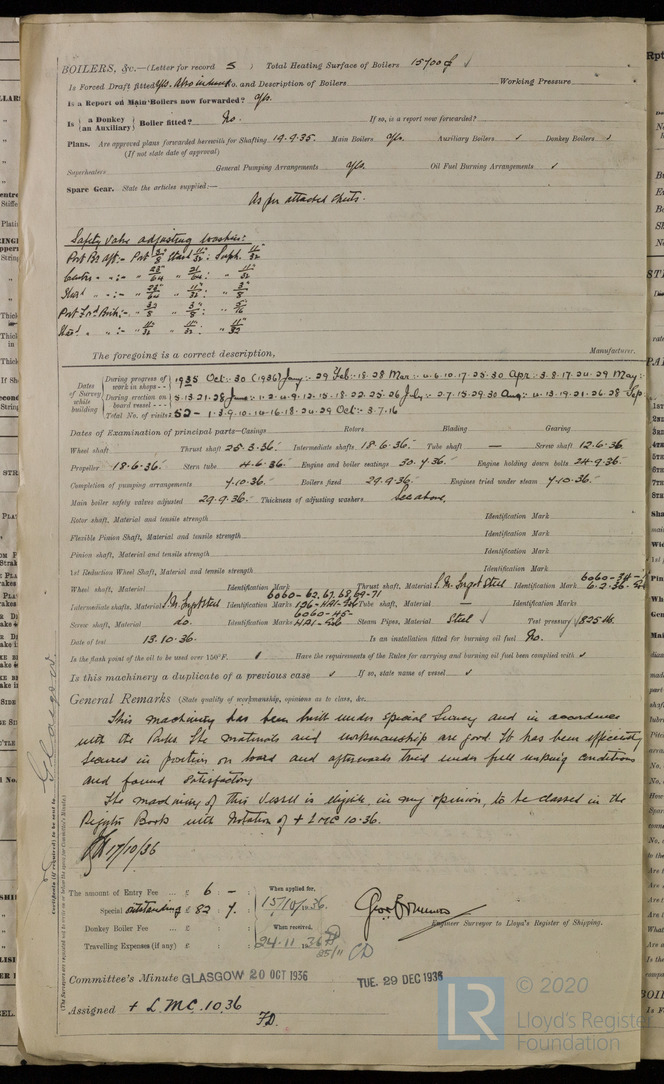 BOILERS, &c.—(Letter for record S ) Total Heating Surface of Boilers 15700 ✓
Is Forced Draft fitted No. and Description of Boilers Working Pressure
Is a Report on Main Boilers now forwarded?
Is { a Donkey (an Auxiliary) } Boiler fitted? No. If so, is a report now forwarded?
Plans. Are approved plans forwarded herewith for Shafting 19.9.35. Main Boilers Auxiliary Boilers ✓ Donkey Boilers ✓
(If not state date of approval)
Superheaters General Pumping Arrangements Oil Fuel Burning Arrangements ✓
Spare Gear. State the articles supplied:—
As per attached sheets.
Safety Valve adjusting washers:
The foregoing is a correct description, Manufacturer.
Dates of Survey while building
During progress of work in shops - - 1935 Oct: 30 (1936) Jany: 29 Feb: 18. 28 Mar: 4. 6. 10. 17. 25. 30 Apr: 3. 8. 17. 24. 29 May:
During erection on board vessel - - 5. 13. 21. 28 June: 1. 2. 4. 9. 12. 15. 18. 22. 25. 26 July: 2. 7. 15. 29. 30 Aug: 4. 13. 19. 21. 26. 28 Sep:
Total No. of visits: 52 - 1. 3. 9. 10. 14. 16. 18. 24. 29 Oct: 3. 7. 16
Dates of Examination of principal parts—Casings Rotors Blading Gearing
Wheel shaft Thrust shaft 25.3.36. Intermediate shafts 18.6.36. Tube shaft — Screw shaft 12.6.36
Propeller 18.6.36. Stern tube 4.6.36. Engine and boiler seatings 30.7.36. Engine holding down bolts 24.9.36.
Completion of pumping arrangements 7.10.36. Boilers fixed 29.9.36. Engines tried under steam 7.10.36.
Main boiler safety valves adjusted 29.9.36. Thickness of adjusting washers See above.
Rotor shaft, Material and tensile strength Identification Mark
Flexible Pinion Shaft, Material and tensile strength Identification Mark
Pinion shaft, Material and tensile strength Identification Mark
1st Reduction Wheel Shaft, Material and tensile strength Identification Mark
Wheel shaft, Material Identification Mark Thrust shaft, Material S.M. Ingot Steel Identification Mark
Intermediate shafts, Material S.M. Ingot Steel Identification Marks 6060-62.67.68.69-71 Tube shaft, Material — Identification Marks
Screw shaft, Material do. Identification Marks 6060-45- Steam Pipes, Material Steel ✓ Test pressure 825 lb.
Date of test 13.10.36. Is an installation fitted for burning oil fuel No.
Is the flash point of the oil to be used over 150°F. Have the requirements of the Rules for carrying and burning oil fuel been complied with ✓
Is this machinery a duplicate of a previous case ✓ If so, state name of vessel ✓
General Remarks (State quality of workmanship, opinions as to class, &c.
This machinery has been built under Special Survey and in accordance
with the Rules. The materials and workmanship are good. It has been efficiently
secured in position on board and afterwards tried under full working conditions
and found satisfactory
The machinery of this vessel is eligible, in my opinion, to be classed in the
Register Book with Notation of + LMC 10.36.
17/10/36
Certificate (if required) to be sent to Glasgow.
(The Surveyors are requested not to write on or below the space for Committee's Minute.)
The amount of Entry Fee ... £ 6 : - : When applied for,
Special outstanding £ 82 : 7. : 15/10/1936.
Donkey Boiler Fee ... £ : : When received,
Travelling Expenses (if any) £ : : 24.11.1936 25/11
Engineer Surveyor to Lloyd's Register of Shipping.
Committee's Minute GLASGOW 20 OCT 1936 TUE. 29 DEC 1936
Assigned + L.M.C. 10.36
F.D.
LR © 2020
Lloyd's Register
Foundation